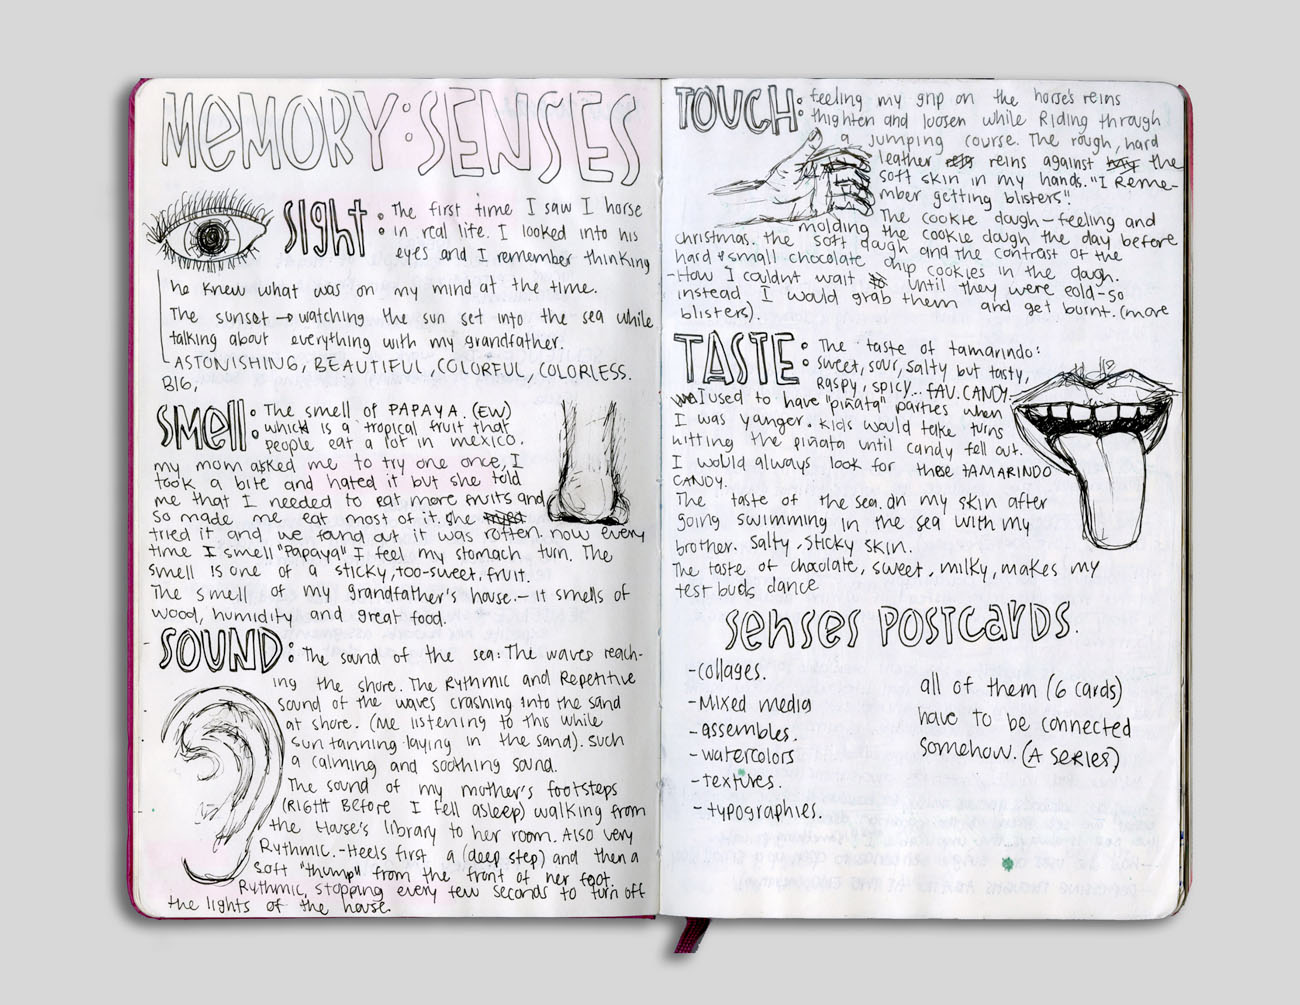 MEMORY: SENSES
SIGHT: The first time I saw I horse
in real life. I looked into his
eyes and I remember thinking
he knew what was on my mind at the time.
The sunset → watching the sun set into the sea while
talking about everything with my grandfather.
ASTONISHING, BEAUTIFUL, COLORFUL, COLORLESS.
BIG,
SMELL: The smell of PAPAYA. (EW)
which is a tropical fruit that
people eat a lot in mexico.
my mom asked me to try one once, I
took a bite and hated it but she told
me that I needed to eat more fruits and
so made me eat most of it. She
tried it and we found out it was rotten. now every
time I smell "Papaya" I feel my stomach turn. The
smell is one of a sticky, too-sweet, fruit.
The smell of my grandfather's house.- it smells of
wood, humidity and great food.
SOUND: The sound of the sea: The waves reach-
ing the shore. The Rythmic and Repetitive
sound of the waves crashing into the sand
at shore. (me listening to this while
sun tanning laying in the sand). such
a calming and soothing sound.
The sound of my mother's footsteps
(RIGHT BEFORE I fell asleep) walking from
the House's library to her room. Also very
Rythmic.-Heels first a (deep step) and then a
soft "thump" from the front of her foot.
Rythmic, stopping every few seconds to turn off
the lights of the house.
TOUCH: feeling my grip on the horse's reins
thighten and loosen while Riding through
a jumping course. The rough, hard
leather reins against the
soft skin in my hands. "I Reme-
mber getting blisters".
The cookie dough - feeling and
molding the cookie dough the day before
christmas. the soft dough and the contrast of the
hard & small chocolate chip cookies in the dough.
-How I couldnt wait until they were cold-so
instead I would grab them and get burnt. (more
blisters).
TASTE: The taste of tamarindo:
sweet, sour, salty but tasty,
Raspy, spicy... FAV. CANDY.
I used to have "piñata" parties when
I was yanger. kids would take turns
hitting the piñata until candy fell out.
I would always look for these TAMARINDO
CANDY.
The taste of the sea on my skin after
going swimming in the sea with my
brother. Salty, sticky skin.
The taste of chocolate, sweet, milky, makes my
test buds dance
SENSES POSTCARDS.
-collages.
-Mixed media
-assembles.
-watercolors
-textures.
-typographies.
all of them (6 cards)
have to be connected
somehow. (A SERIES)